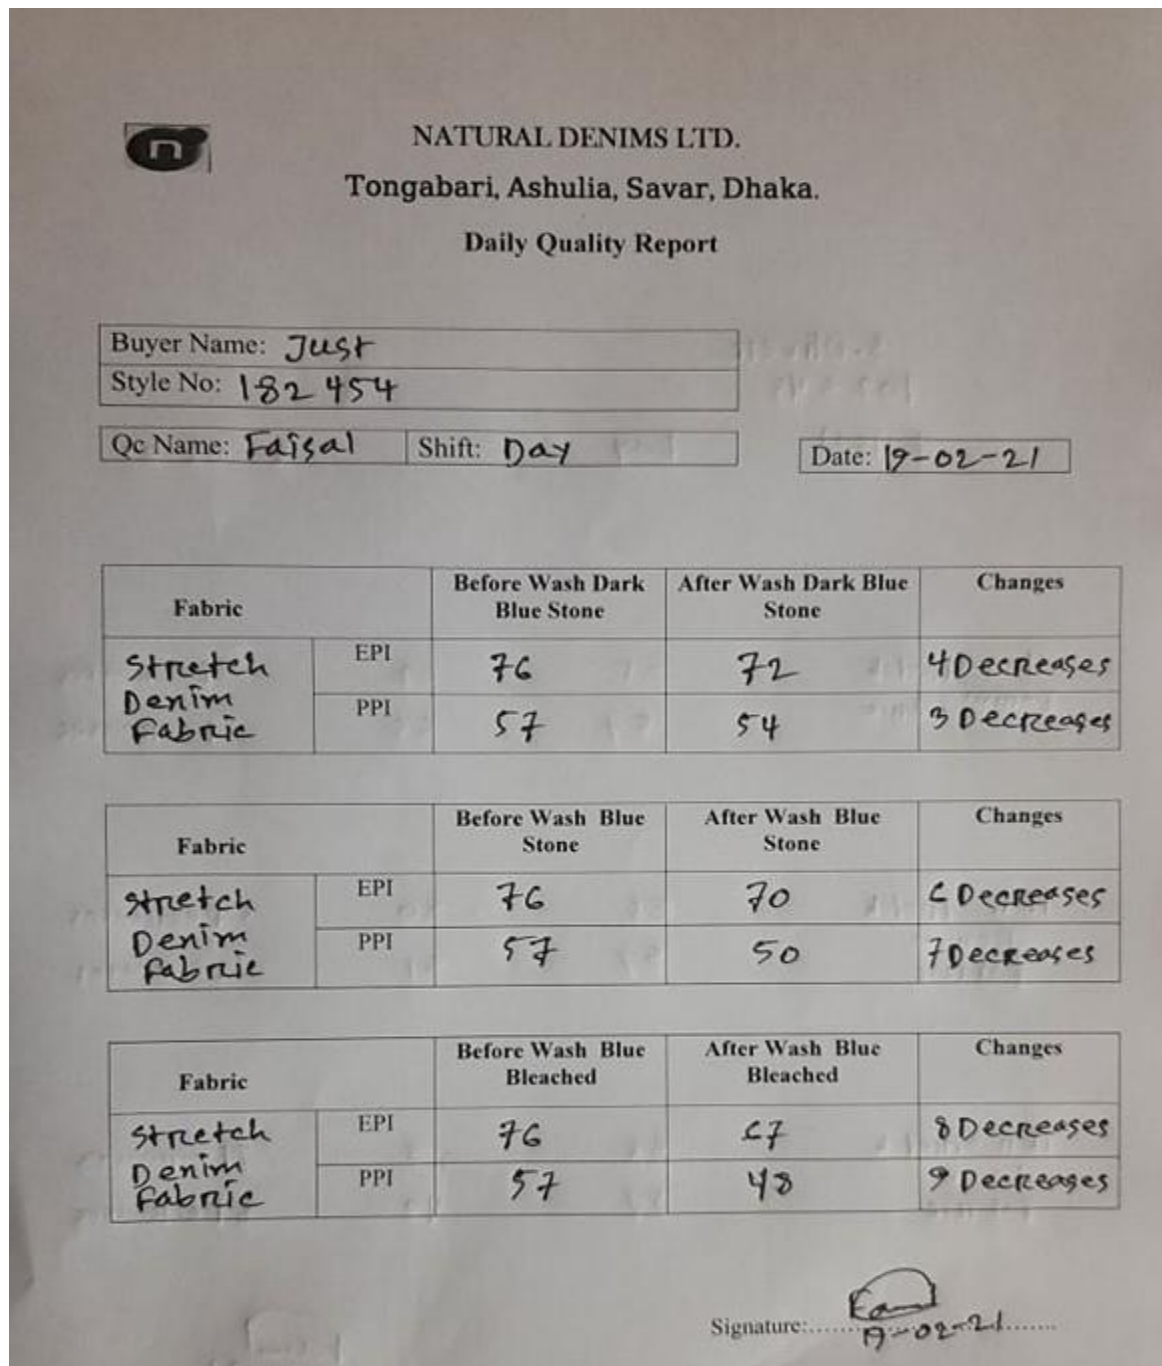 n
NATURAL DENIMS LTD.
Tongabari, Ashulia, Savar, Dhaka.
Daily Quality Report
Buyer Name: Just
Style No: 182 454
Qc Name: Faisal Shift: Day Date: 19-02-21
Fabric Before Wash Dark Blue Stone After Wash Dark Blue Stone Changes
Stretch Denim Fabric EPI 76 72 4 Decreases
PPI 57 54 3 Decreases
Fabric Before Wash Blue Stone After Wash Blue Stone Changes
Stretch Denim Fabric EPI 76 70 6 Decreases
PPI 57 50 7 Decreases
Fabric Before Wash Blue Bleached After Wash Blue Bleached Changes
Stretch Denim Fabric EPI 76 67 8 Decreases
PPI 57 48 9 Decreases
Signature:
19-02-21